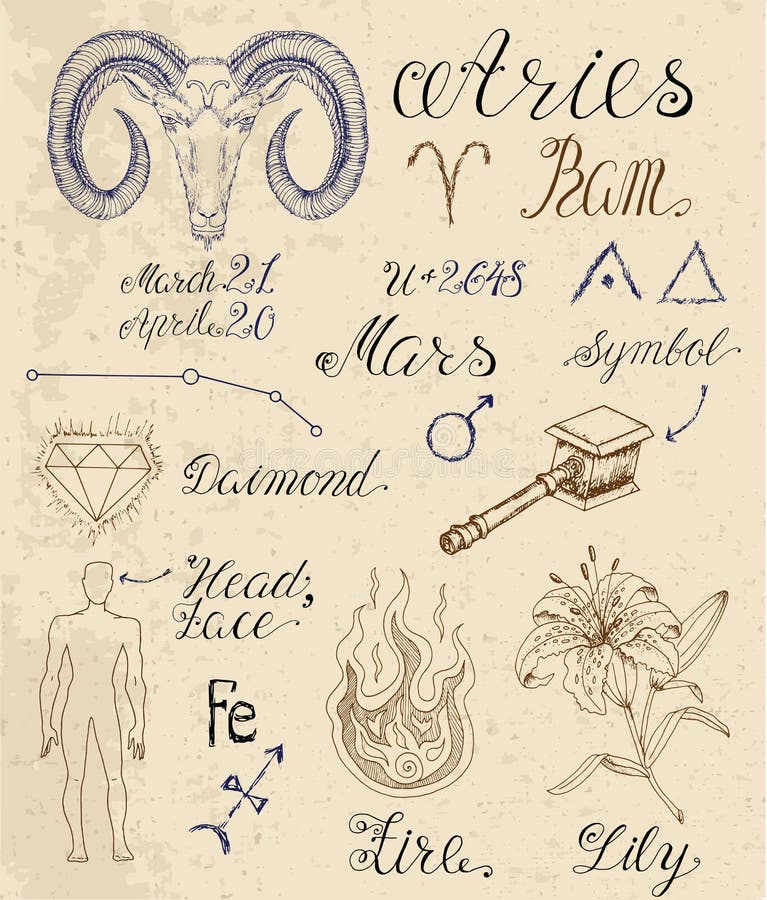 Aries
Ram
March 21
Aprile 20
U+2648
Mars
Symbol
Daimond
Head,
Face
Fe
Fire
Lily